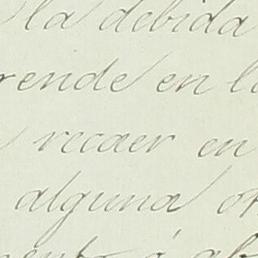 la debida
rende en l
recaer en
alguna